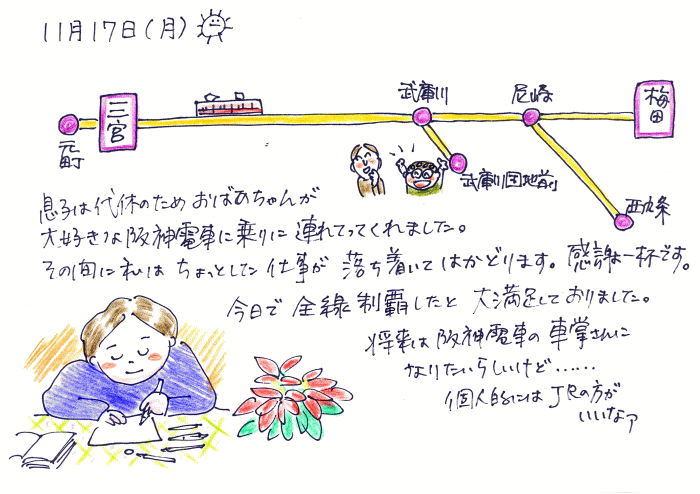 11月17日(月)
三宮
元町
武庫川
尼崎
梅田
武庫川団地前
西九条
息子は代休のため おばあちゃんが
大好きな阪神電車に乗りに連れてってくれました。
その間に私は ちょっとした仕事が 落ち着いてはかどります。感謝一杯です。
今日で全線制覇したと 大満足しておりました。
将来は 阪神電車の 車掌さんに
なりたいらしいけど……
個人的には JRの方が
いいなァ